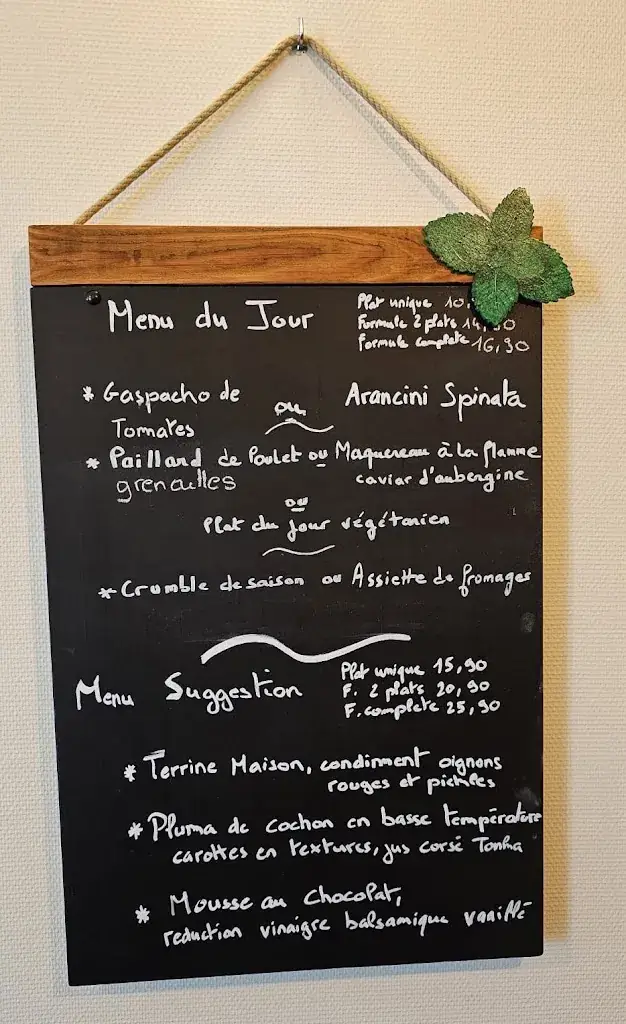 Menu du Jour
Plat unique 10,
Formule 2 plats 14,90
Formule complete 16,90
* Gaspacho de Tomates
ou
Arancini Spinata
* Paillard de Poulet ou Maquereau à la flamme
grenailles
caviar d'aubergine
ou
Plat du jour végétarien
* Crumble de saison ou Assiette de fromages
Menu Suggestion
Plat unique 15,90
F. 2 plats 20,90
F. complete 25,90
* Terrine Maison, condiment oignons
rouges et pickles
* Pluma de cochon en basse température
carottes en textures, jus corsé Tonka
* Mousse au chocolat,
reduction vinaigre balsamique vanillé